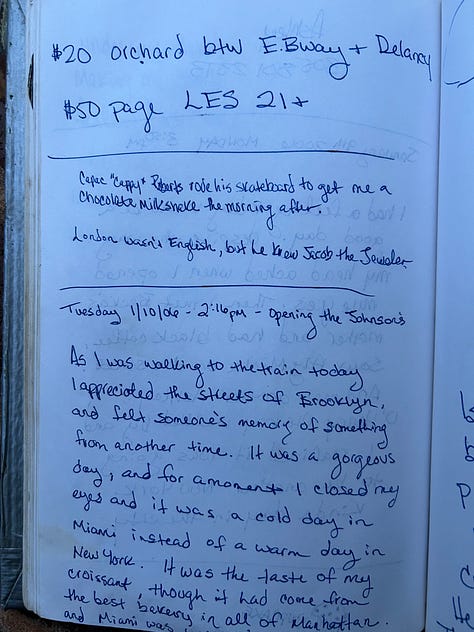 $20 orchard btw E.Bway + Delancy
$50 page LES 21+
Capac "Cappy" Roberts rode his skateboard to get me a
chocolate milkshake the morning after.
London wasn't English, but he knew Jacob the Jeweler.
Tuesday 1/10/06 - 2:16pm - Opening the Johnson's
As I was walking to the train today
I appreciated the streets of Brooklyn,
and felt someone's memory of something
from another time. It was a gorgeous
day, and for a moment I closed my
eyes and it was a cold day in
Miami instead of a warm day in
New York. It was the taste of my
croissant, though it had come from
the best bakery in all of Manhattan.
and Miami was